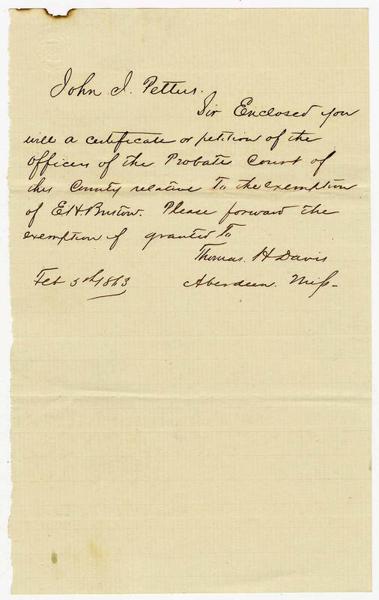 John J. Pettus.
Sir Enclosed you
will a certificate or petition of the
Officers of the Probate Court of
this County relative To the exemption
of E H Bristow. Please forward the
exemption if granted To
Thomas. H Davis
Feb 5th 1863 Aberdeen. Miss-